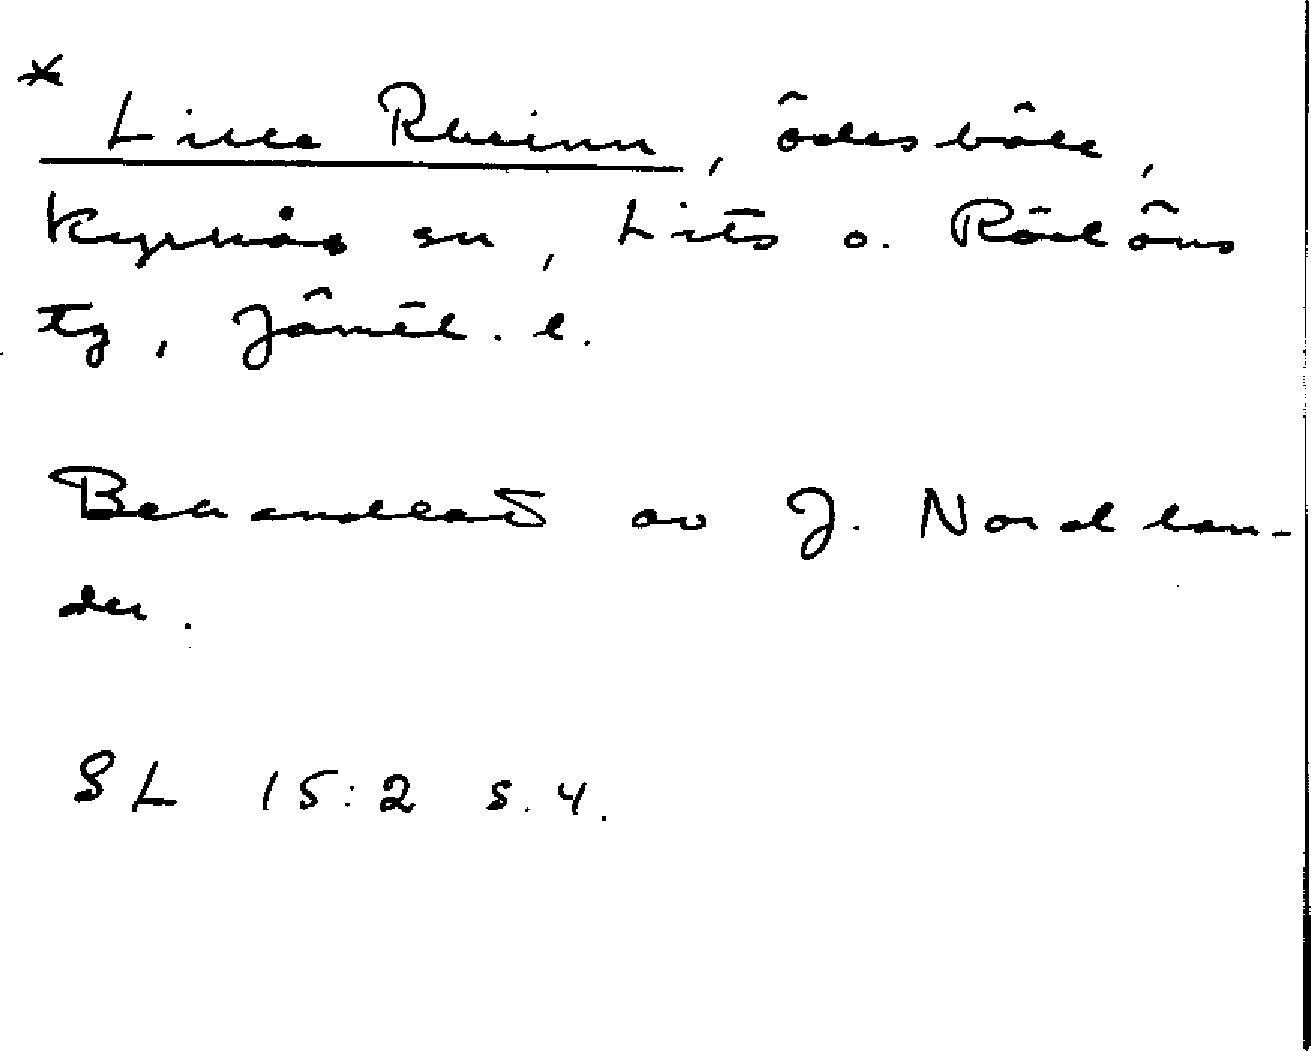 * Lille Rheinn, ödesböle,
Kyrkås sn, Lits o. Rödöns
tg, Jämtl. l.
Behandlat av J. Nordlan-
der.
SL 15:2 s. 4.